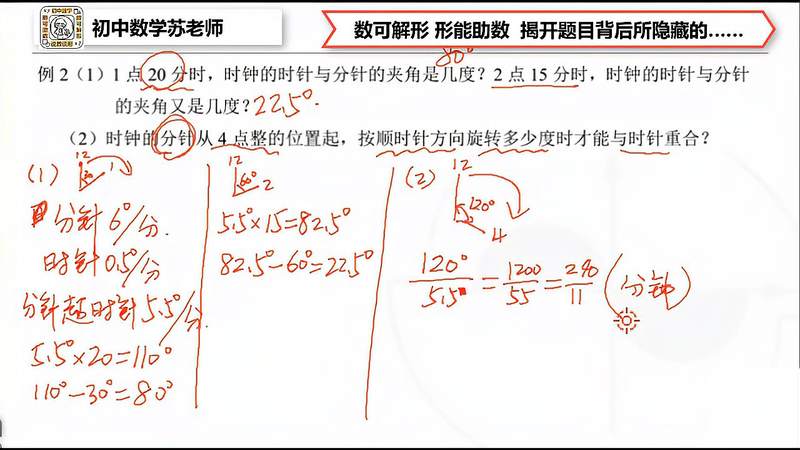 初中数学苏老师
数可解形 形能助数 揭开题目背后所隐藏的......
80°
例 2（1）1 点 20 分时，时钟的时针与分针的夹角是几度？2 点 15 分时，时钟的时针与分针
的夹角又是几度？22.5°.
（2）时钟的分针从 4 点整的位置起，按顺时针方向旋转多少度时才能与时针重合？
(1) 12 1
分针 6°/分.
时针 0.5°/分
分针超时针 5.5°/分.
5.5°×20=110°
110°-30°=80°
12 60° 2
5.5°×15=82.5°
82.5°-60°=22.5°
(2) 12 120° 4
120°/5.5°=1200/55=240/11(分钟)